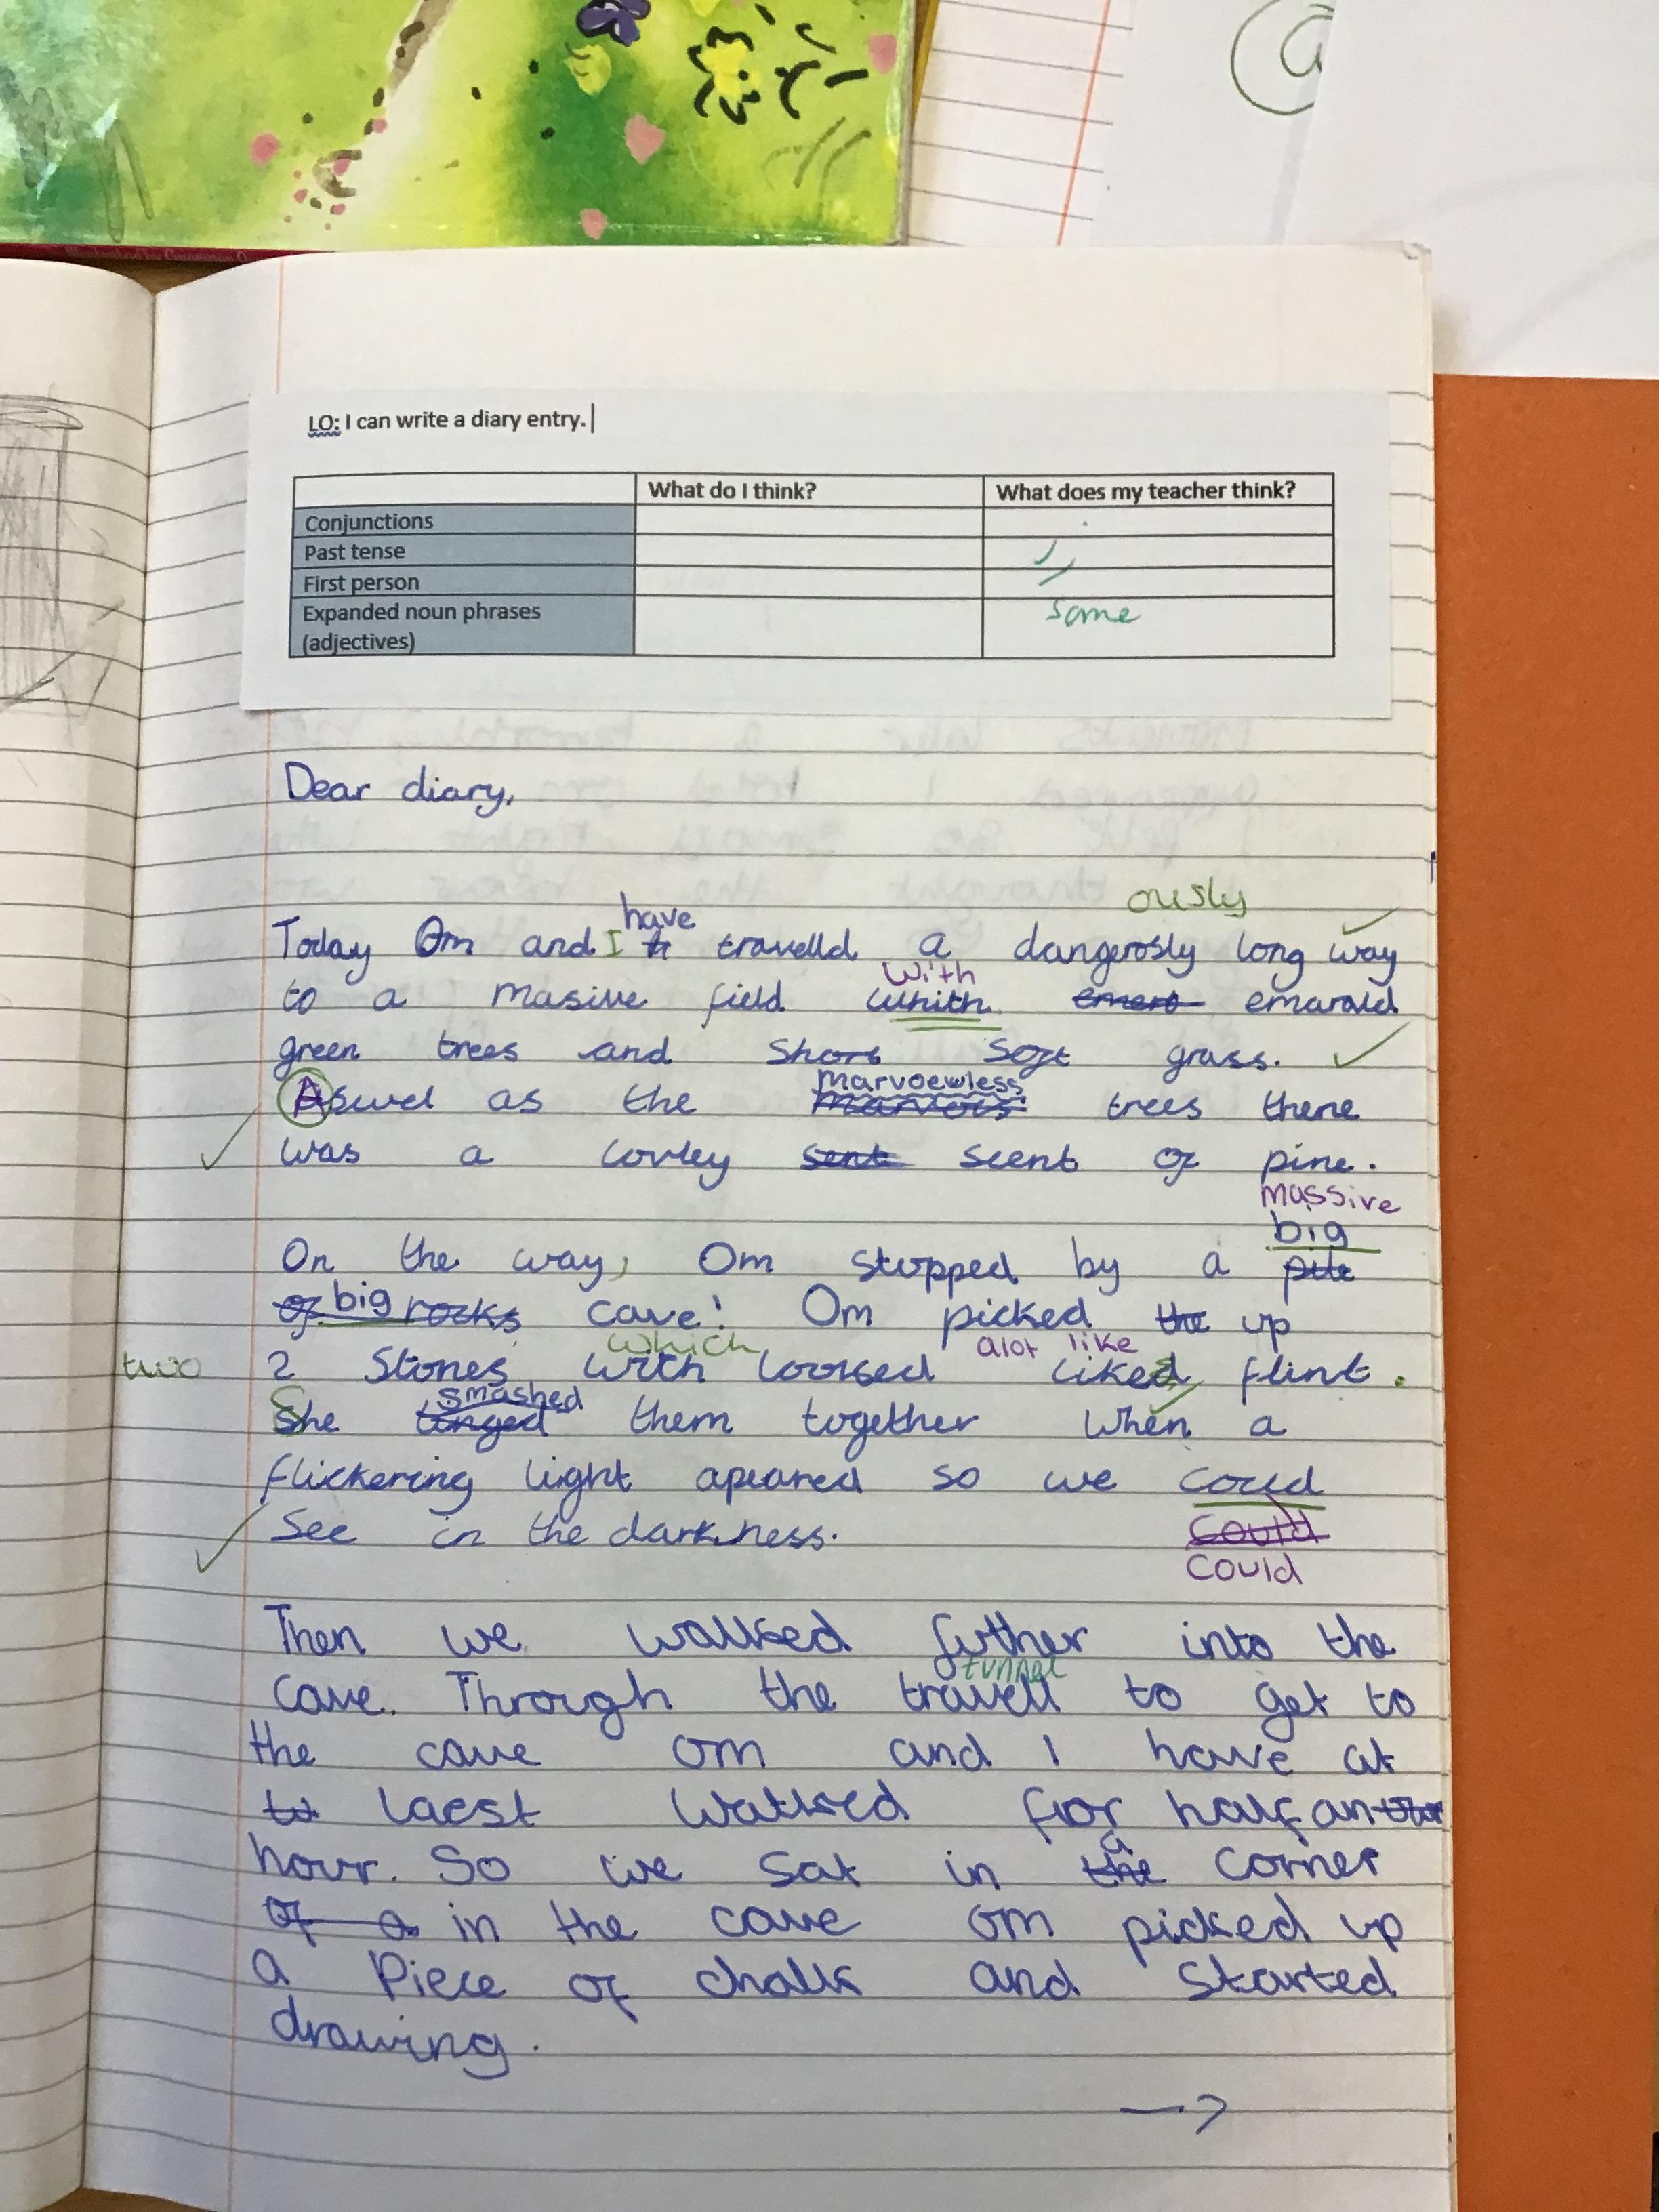 a
LO: I can write a diary entry.
What do I think? What does my teacher think?
Conjunctions
Past tense
First person
Expanded noun phrases some
(adjectives)
Dear diary,
have ously
Today Om and I travelld a dangerosly long way
With
to a masive field whith emarald
green trees and short soft grass.
marvoewless
Aswel as the trees there
was a lovley sent scent of pine.
massive
big
On the way, Om stopped by a pile
of big rocks cave! Om picked the up
which alot like
two 2 Stones with loocked liked flint.
smashed
She tinged them together when a
flickering light apeared so we coud
see in the darkness. could
could
Then we walked futher into the
tunnel
cave. Through the travell to get to
the cave om and I have at
laest walked for half an
a
hour. So we sat in the corner
of a in the cave om picked up
a Piece of chalk and started
drawing.